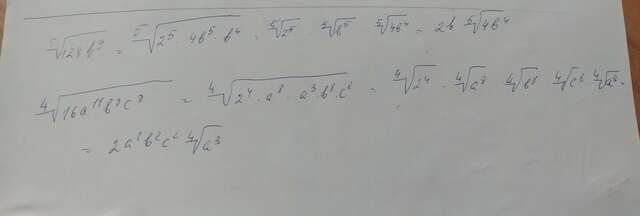 ⁵√128b⁹ = ⁵√2⁵ · 4b⁵ · b⁴ = ⁵√2⁵ · ⁵√b⁵ ⁵√4b⁴ = 2b ⁵√4b⁴
⁴√16a¹¹b⁸c⁸ = ⁴√2⁴ · a⁸ · a³ · b⁸ · c⁸ = ⁴√2⁴ · ⁴√a⁸ ⁴√b⁸ ⁴√c⁸ ⁴√a³ =
= 2a²b²c² ⁴√a³